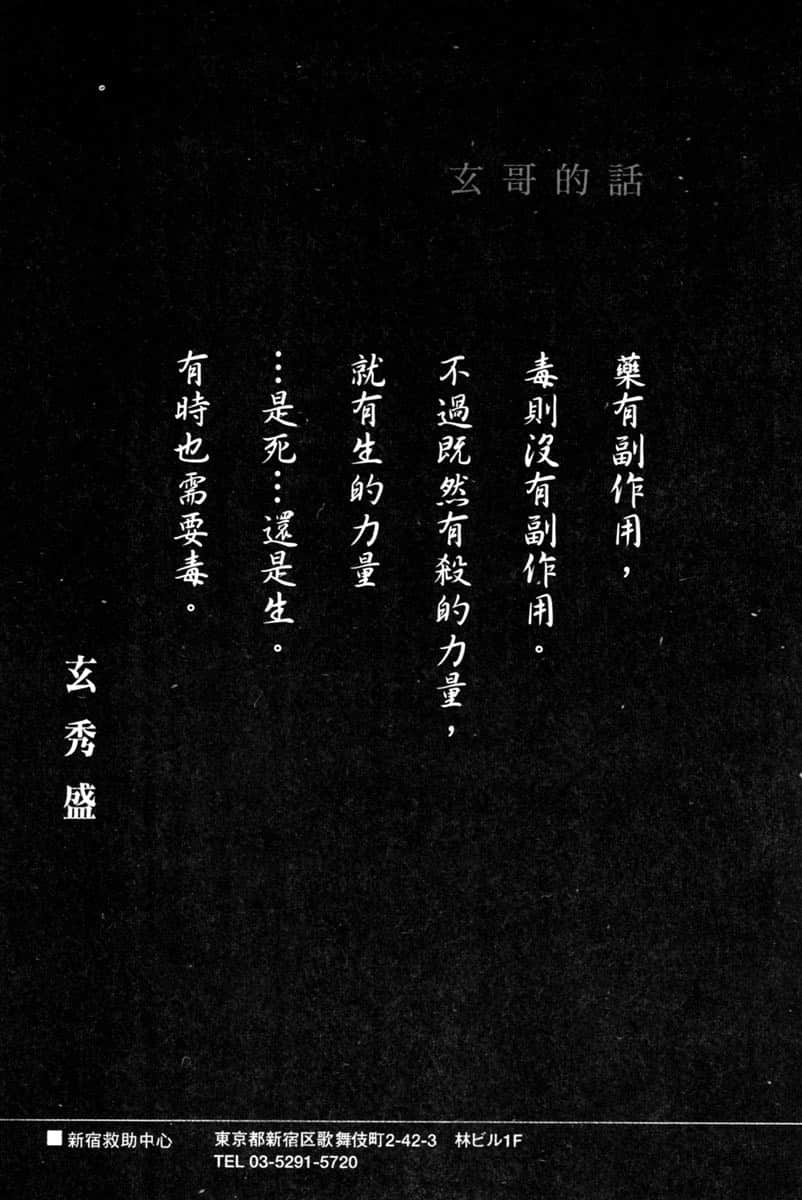 玄哥的話
藥有副作用，
毒則沒有副作用。
不過既然有殺的力量，
就有生的力量
…是死…還是生。
有時也需要毒。
玄秀盛
■新宿救助中心 東京都新宿区歌舞伎町2-42-3 林ビル1F
TEL 03-5291-5720